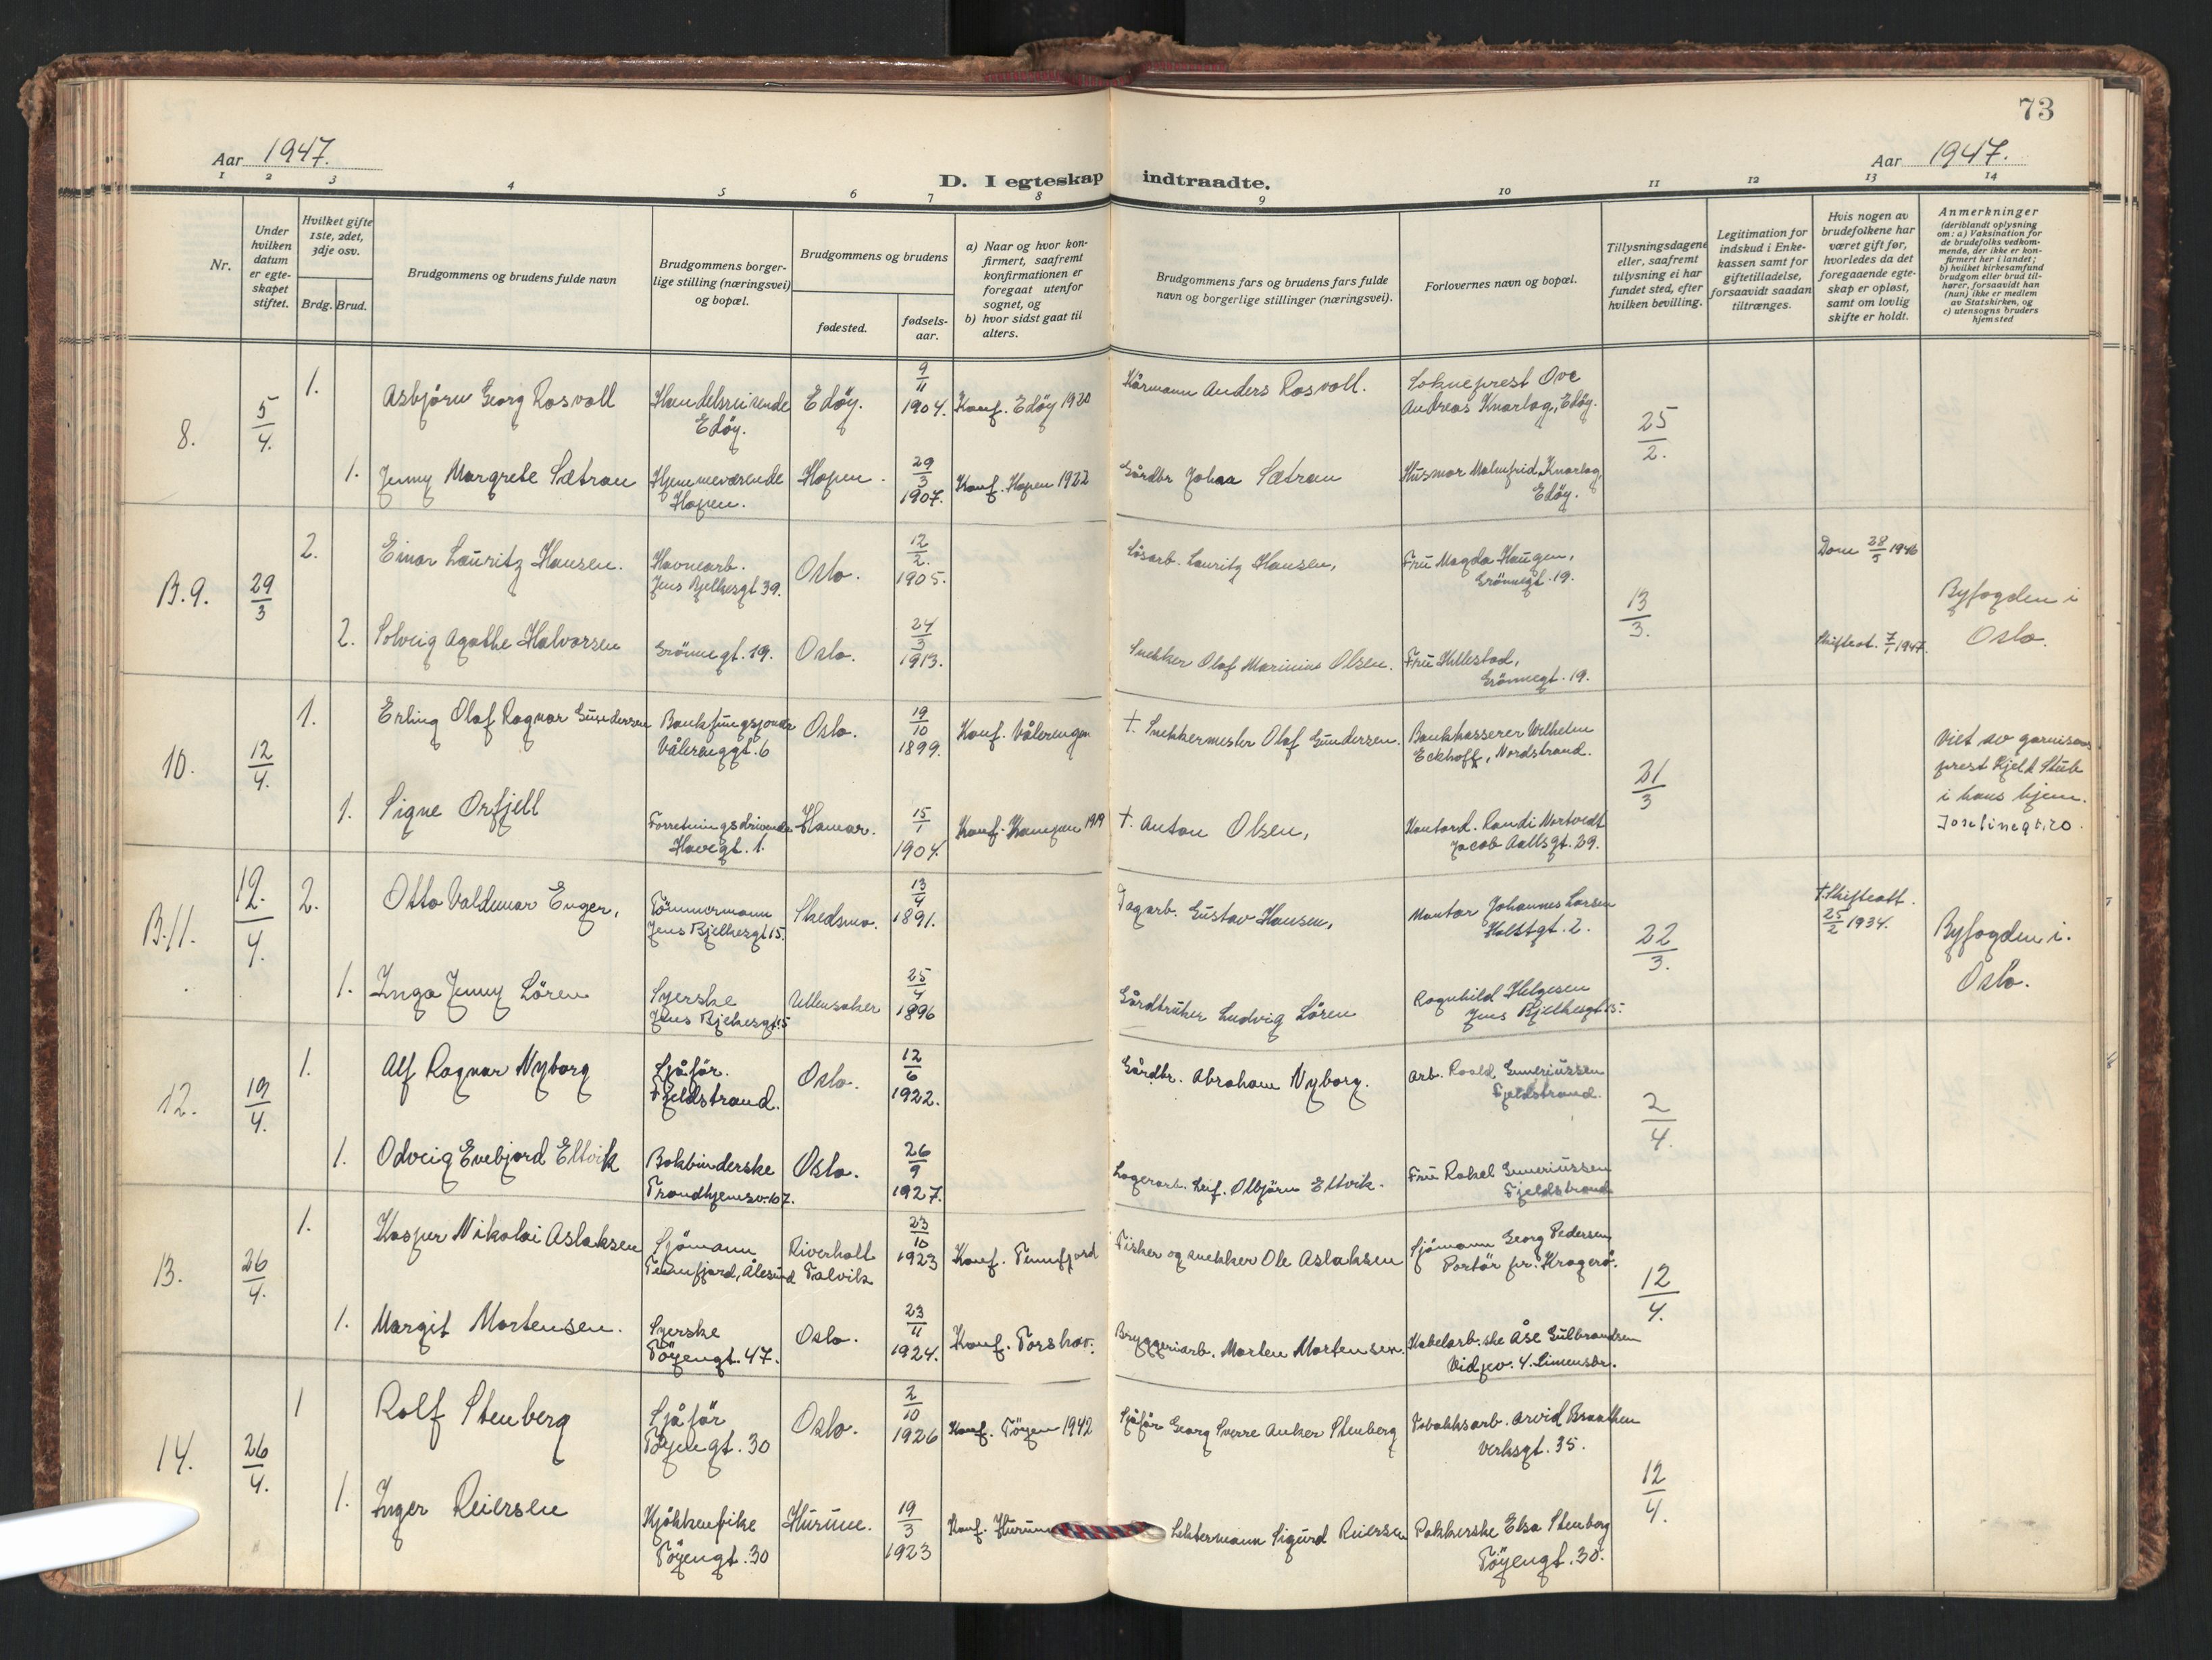 73
Aar 1947.
Aar 1947.
D. I egteskap indtraadte.
1 2 3 4 5 6 7 8 9 10 11 12 13 14
Nr.
Under hvilken datum er egte-skapet stiftet.
Hvilket gifte 1ste, 2det, 3dje osv.
Brdg. Brud.
Brudgommens og brudens fulde navn
Brudgommens borger-lige stilling (næringsvei) og bopæl.
Brudgommens og brudens
fødested.
fødsels-aar.
a) Naar og hvor kon-firmert, saafremt konfirmationen er foregaat utenfor sognet, og
b) hvor sidst gaat til alters.
Brudgommens fars og brudens fars fulde navn og borgerlige stillinger (næringsvei).
Forlovernes navn og bopæl.
Tillysningsdagene eller, saafremt tillysning ei har fundet sted, efter hvilken bevilling.
Legitimation for indskud i Enke-kassen samt for giftetilladelse, forsaavidt saadan tiltrænges.
Hvis nogen av brudefolkene har været gift før, hvorledes da det foregaaende egte-skap er opløst, samt om lovlig skifte er holdt.
Anmerkninger (deriblandt oplysning om: a) Vaksination for de brudefolks vedkom-mende, der ikke er kon-firmert her i landet; b) hvilket kirkesamfund brudgom eller brud til-hører, forsaavidt han (hun) ikke er medlem av Statskirken, og c) utensogns bruders hjemsted
8. 5/4. 1. Asbjörn Georg Rosvoll Handelsreisende Edöy. Edöy. 9/11 1904. Konf. Edöy 1920 Kårmann Anders Rosvoll. Sokneprest Ove Andreas Knarlag, Edöy. 25/2.
1. Jenny Margrete Sætran Hjemmeværende Hopen. Hopen. 29/3 1907. Konf. Hopen 1922 Gårdbr Johan Sætran Husmor Malmfrid Knarlag, Edöy.
B.9. 29/3 2. Einar Lauritz Hansen. Havnearb. Jens Bjelkesgt 39. Oslo. 12/2. 1905. Lösarb. Lauritz Hansen, Fru Magda Haugen, Grönnegt. 19. 13/3. Dom 28/5 1946 Byfogden i Oslo.
2. Solveig Agathe Halvorsen Grönnegt. 19. Oslo. 24/3 1913. Snekker Olaf Marinius Olsen. Fru Hillestad, Grönnegt. 19. Skifteat. 7/1 1947.
10. 12/4. 1. Erling Olaf Ragnar Gundersen Bankfungsjonær Vålerenggt. 6 Oslo. 19/10 1899. Konf. Vålerengen † Snekkermester Olaf Gundersen. Bankkasserer Wilhelm Eckhoff, Nordstrand. 21/3 Viet av garnisons prest Kjeld Stub i hans hjem. Josefinegt. 20.
1. Signe Orfjell Forretningsdrivende Havegt. 1. Hamar. 15/1 1904. Konf. 1919 †. Anton Olsen, Kontord. Randi Nortvedt Jacob Aallsgt. 29.
B.11. 12./4. 2. Otto Valdemar Enger, Tömmermann Jens Bjelkesgt 15. Skedsmo. 13/4 1891. Dagarb. Gustav Hansen, Montør Johannes Larsen Holstgt. 2. 22/3. †. Skifteatt. 25/2 1934. Byfogden i. Oslo.
1. Inga Jenny Lören Syerske Jens Bjelkesgt 15 Ullensaker 25/4 1896 Gårdbruker Ludvig Lören Ragnhild Helgesen Jens Bjelkesgt 15.
12. 19/4. 1. Alf Ragnar Nyborg Sjåför. Fjeldstrand. Oslo. 12/6 1922. Gårdbr. Abraham Nyborg. Arb. Roald Guneriussen Fjeldstrand. 2/4.
1. Odveig Evebjørd Eltvik Bokbinderske Trondhjemsv. 107. Oslo. 26/9 1927. Lagerarb. Leif. Olbjörn Eltvik. Fru Rakel Guneriussen Fjeldstrand
13. 26/4. 1. Kasper Nikolai Aslaksen Sjömann Tennfjord, Ålesund Riverholt Talvik 23/10 1923 Konf. Tennfjord Fisker og snekker Ole Aslaksen Sjömann Georg Pedersen Portör pr. Kragerö. 12/4.
1. Margit Mortensen. Syerske Töyengt. 47. Oslo. 23/11 1924. Konf. Torshov. Bryggeriarb. Morten Mortensen. Kabelarb.ske Åse Gulbrandsen Vidjev. 4. Simensbr.
14. 26/4. 1 Rolf Stenberg Sjåför Töyengt. 30 Oslo. 2/10 1926 Konf. Töyen 1942 Sjåför Georg Sverre Anker Stenberg Tobakksarb. Arvid Braathen Verksgt. 35. 12/4.
1. Inger Reiersen Kjökkenpike Töyengt. 30 Hurum. 19/3 1923 Konf. Hurum Sigurd Reiersen Pakkerske Elsa Stenberg Töyengt. 30.